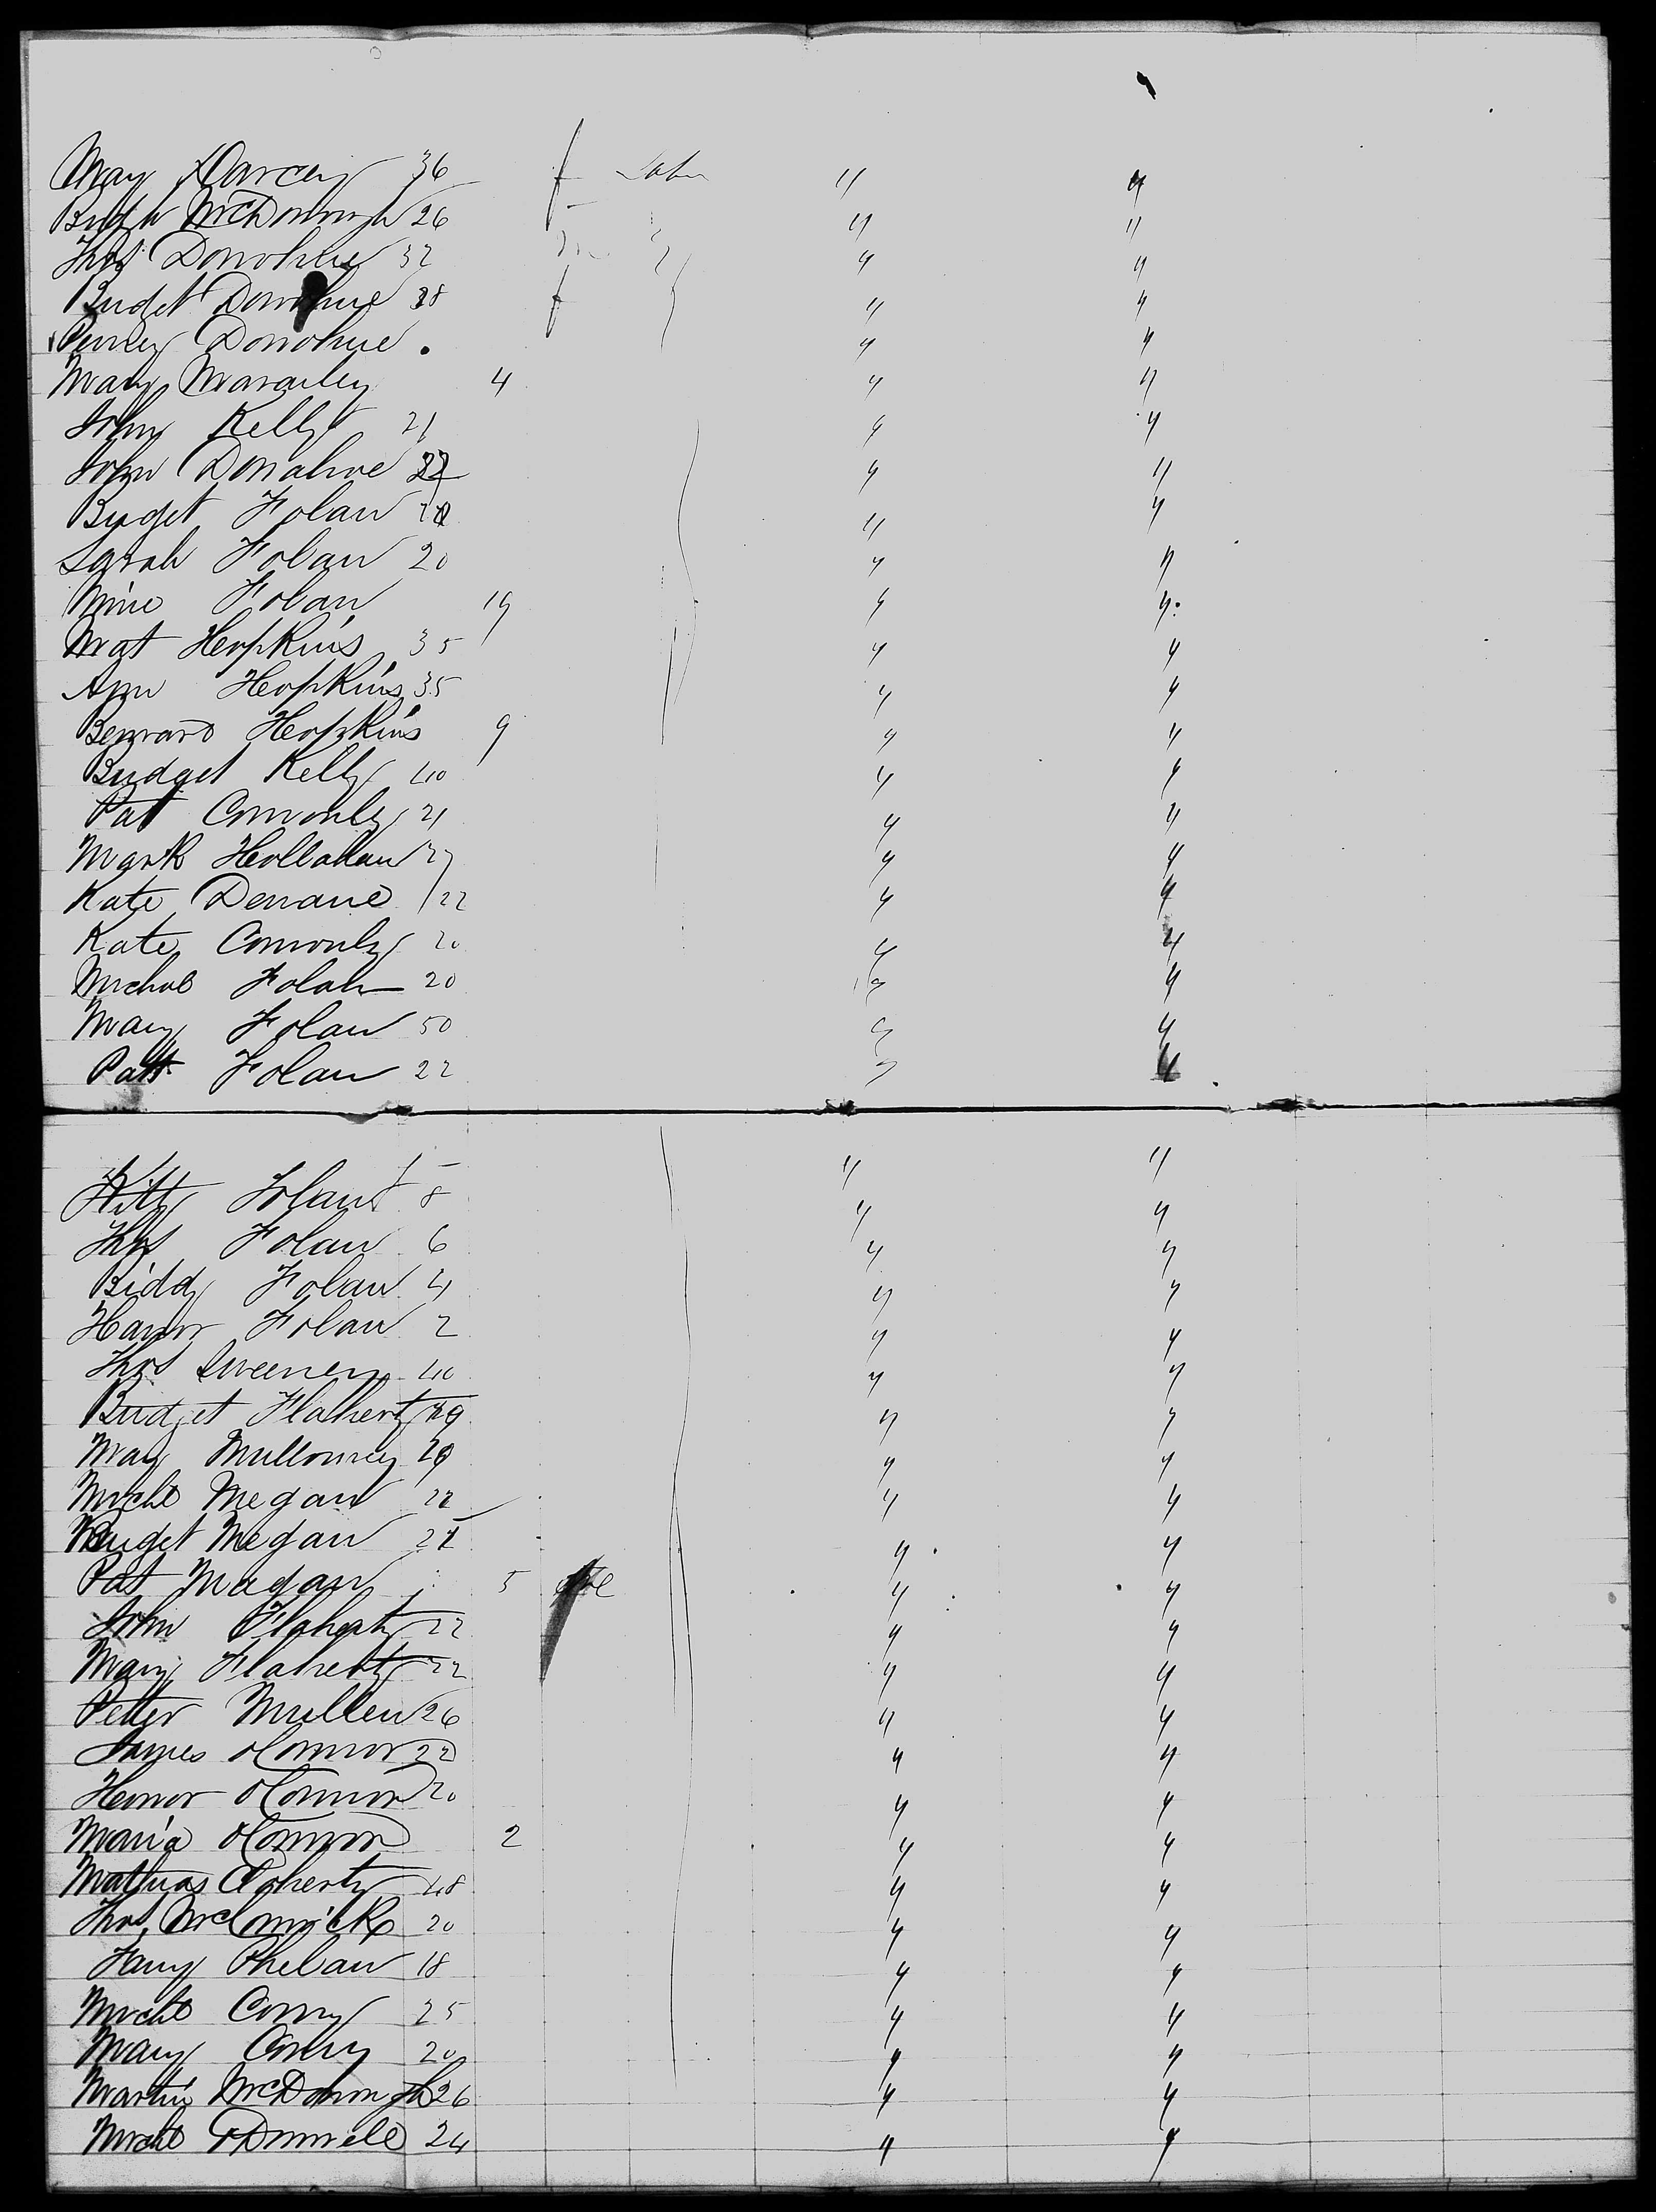 Mary Darcey 36 f Labr " "
Bridgt McDonough 26 " "
Thos Donohue 32 m " "
Bridget Donohue 28 f " "
Penney Donohue " "
Mary 4 " "
John Kelly 21 " "
John Donahue " "
Bridget Folan " "
Sarah Folan 20 " "
Folan 19 " "
Mat Hopkins 35 " "
Ann Hopkins 35 " "
Bernard Hopkins 9 " "
Bridget Kelly 40 " "
Pat Connonly 21 " "
Mark Hollahan 27 " "
Kate Denane 22 " "
Kate Connonly 20 " "
Michal Folan 20 " "
Mary Folan 50 " "
Patt Folan 22 " "
Kitty Folan 8 " "
Thos Folan 6 " "
Biddy Folan 4 " "
Hanor Folan 2 " "
Thos Sweeney 40 " "
Bridget Flaherty " "
Mary Mullowney 29 " "
Michl Megan 22 " "
Bridget Megan " "
Pat Magan 5 " "
John Flaherty 22 " "
Mary Flaherty 22 " "
Petter Mullen 26 " "
James oConnor 22 " "
Honor oConnor 20 " "
Maria oConnor 2 " "
Mathias Cloherty 48 " "
Thos McCormick 20 " "
Fany Phelan 18 " "
Michl Conry 25 " "
Mary Conry 20 " "
Martin McDonough 26 " "
Michl ODonnell 24 " "